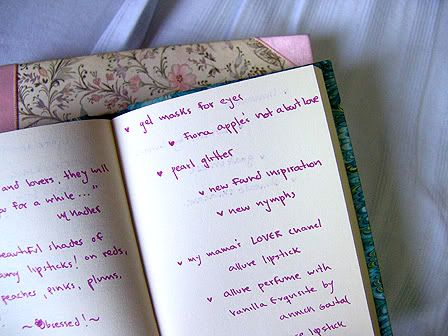 and lovers, they will
for a while..."
beautiful shades of
lipsticks! on reds,
peaches, pinks, plums,
~Obsessed!~
♥ gel masks for eyes
♥ fiona apple's not about love
♥ pearl glitter
♥ new found inspiration
♥ new nymphs
♥ my mama's LOVER chanel
allure lipstick
♥ allure perfume with
vanilla Exquisite by
annick Goutal
lipstick